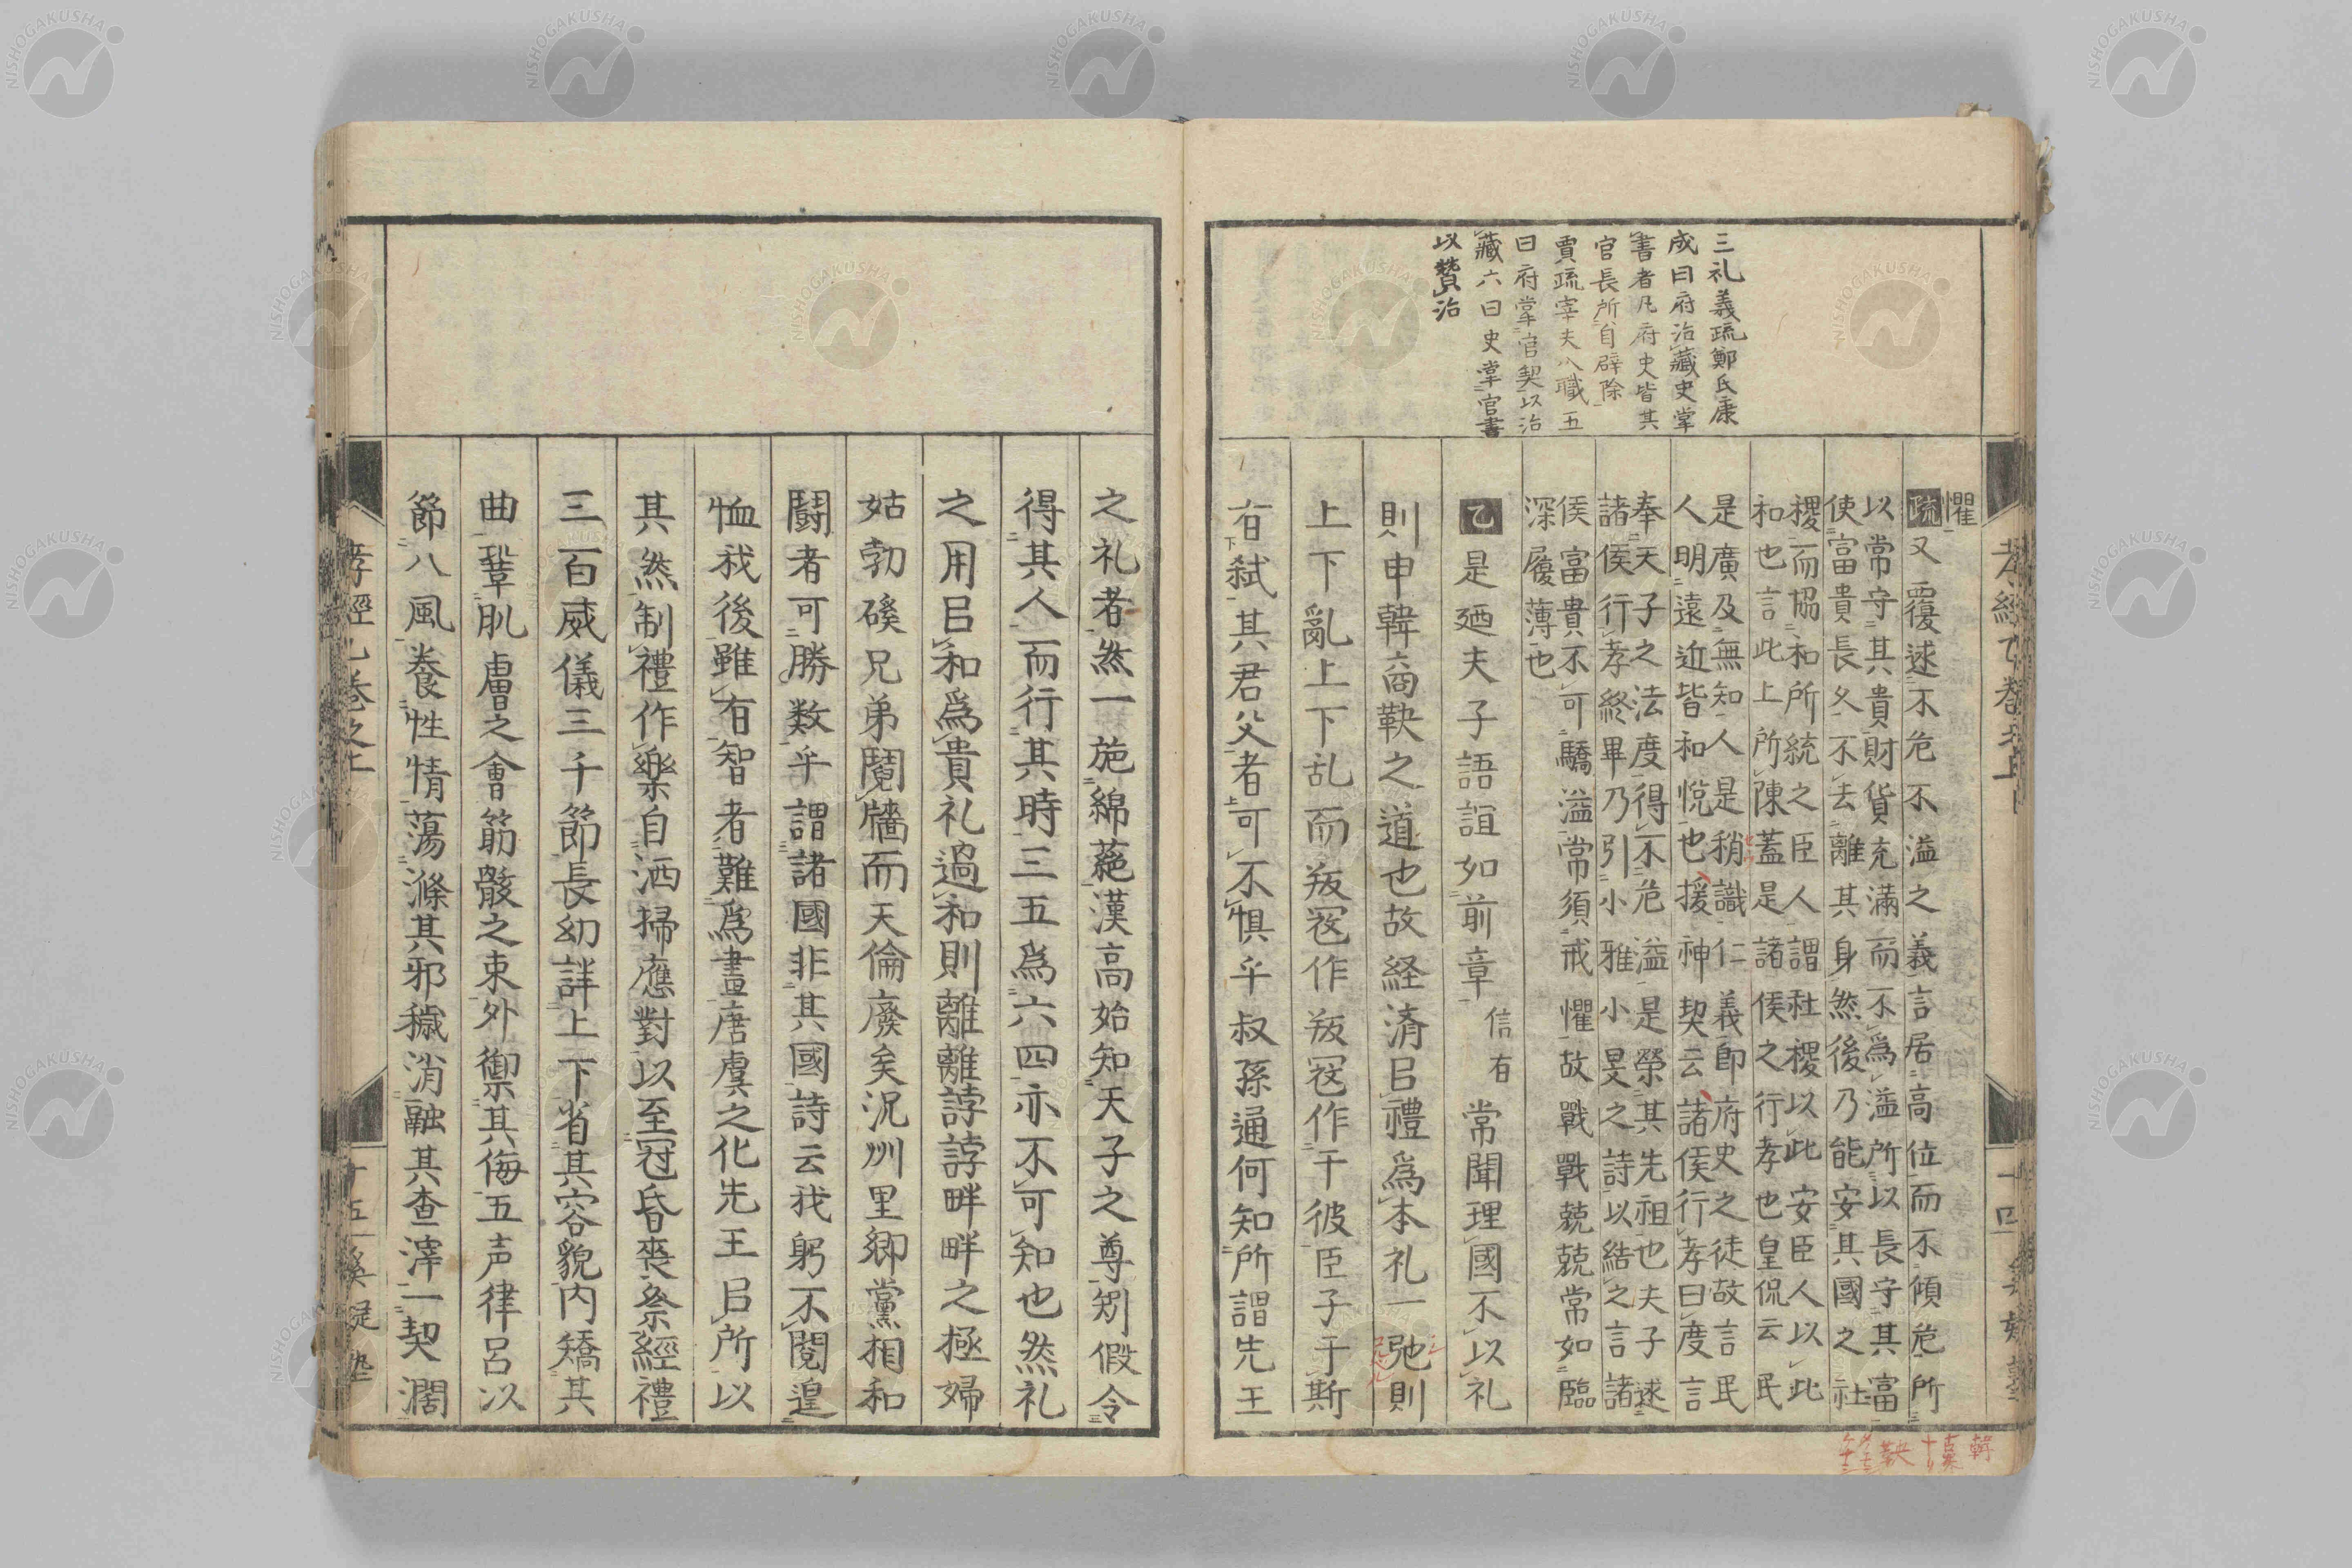 三礼義疏鄭氏康
成曰府治藏史掌
書者凡府史皆其
官長所自辟除
賈疏宰夫八職五
曰府掌官契以治
藏六曰史掌官書
以贊治
懼
疏又覆述不危不溢之義言居高位而不傾危所
以常守其貴財貨充滿而不爲溢所以長守其富
使富貴長久不去離其身然後乃能安其國之社
稷而協和所統之臣人謂社稷以此安臣人以此
和也言此上所陳蓋是諸侯之行孝也皇侃云民
是廣及無知人是稍識仁義即府史之徒故言民
人明遠近皆和悅也援神契云諸侯行孝曰度言
奉天子之法度得不危溢是榮其先祖也夫子述
諸侯行孝終畢乃引小雅小旻之詩以結之言諸
侯富貴不可驕溢常須戒懼故戰戰兢兢常如臨
深履薄也
乙是廼夫子語誼如前章信有常聞理國不以礼
則申韓商鞅之道也故経済㠯禮爲本礼一弛則
上下亂上下乱而叛冦作叛冦作于彼臣子于斯
有弑其君父者可不惧乎叔孫通何知所謂先王
之礼者然一施綿蕝漢高始知天子之尊矧假令
得其人而行其時三五爲六四亦不可知也然礼
之用㠯和爲貴礼過和則離離誖誖畔畔之極婦
姑勃磎兄弟鬩牆而天倫廢矣況州里鄉黨相和
鬪者可勝数乎謂諸國非其國詩云我躬不閱遑
恤我後雖有智者難爲畫唐虞之化先王㠯所以
其然制禮作樂自洒掃應對以至冠昏喪祭經禮
三百威儀三千節長幼詳上下省其容貌内矯其
曲鞏肌膚之會筋骸之束外禦其侮五声律呂以
節八風養性情蕩滌其邪穢消融其査滓一契濶
孝經
十五